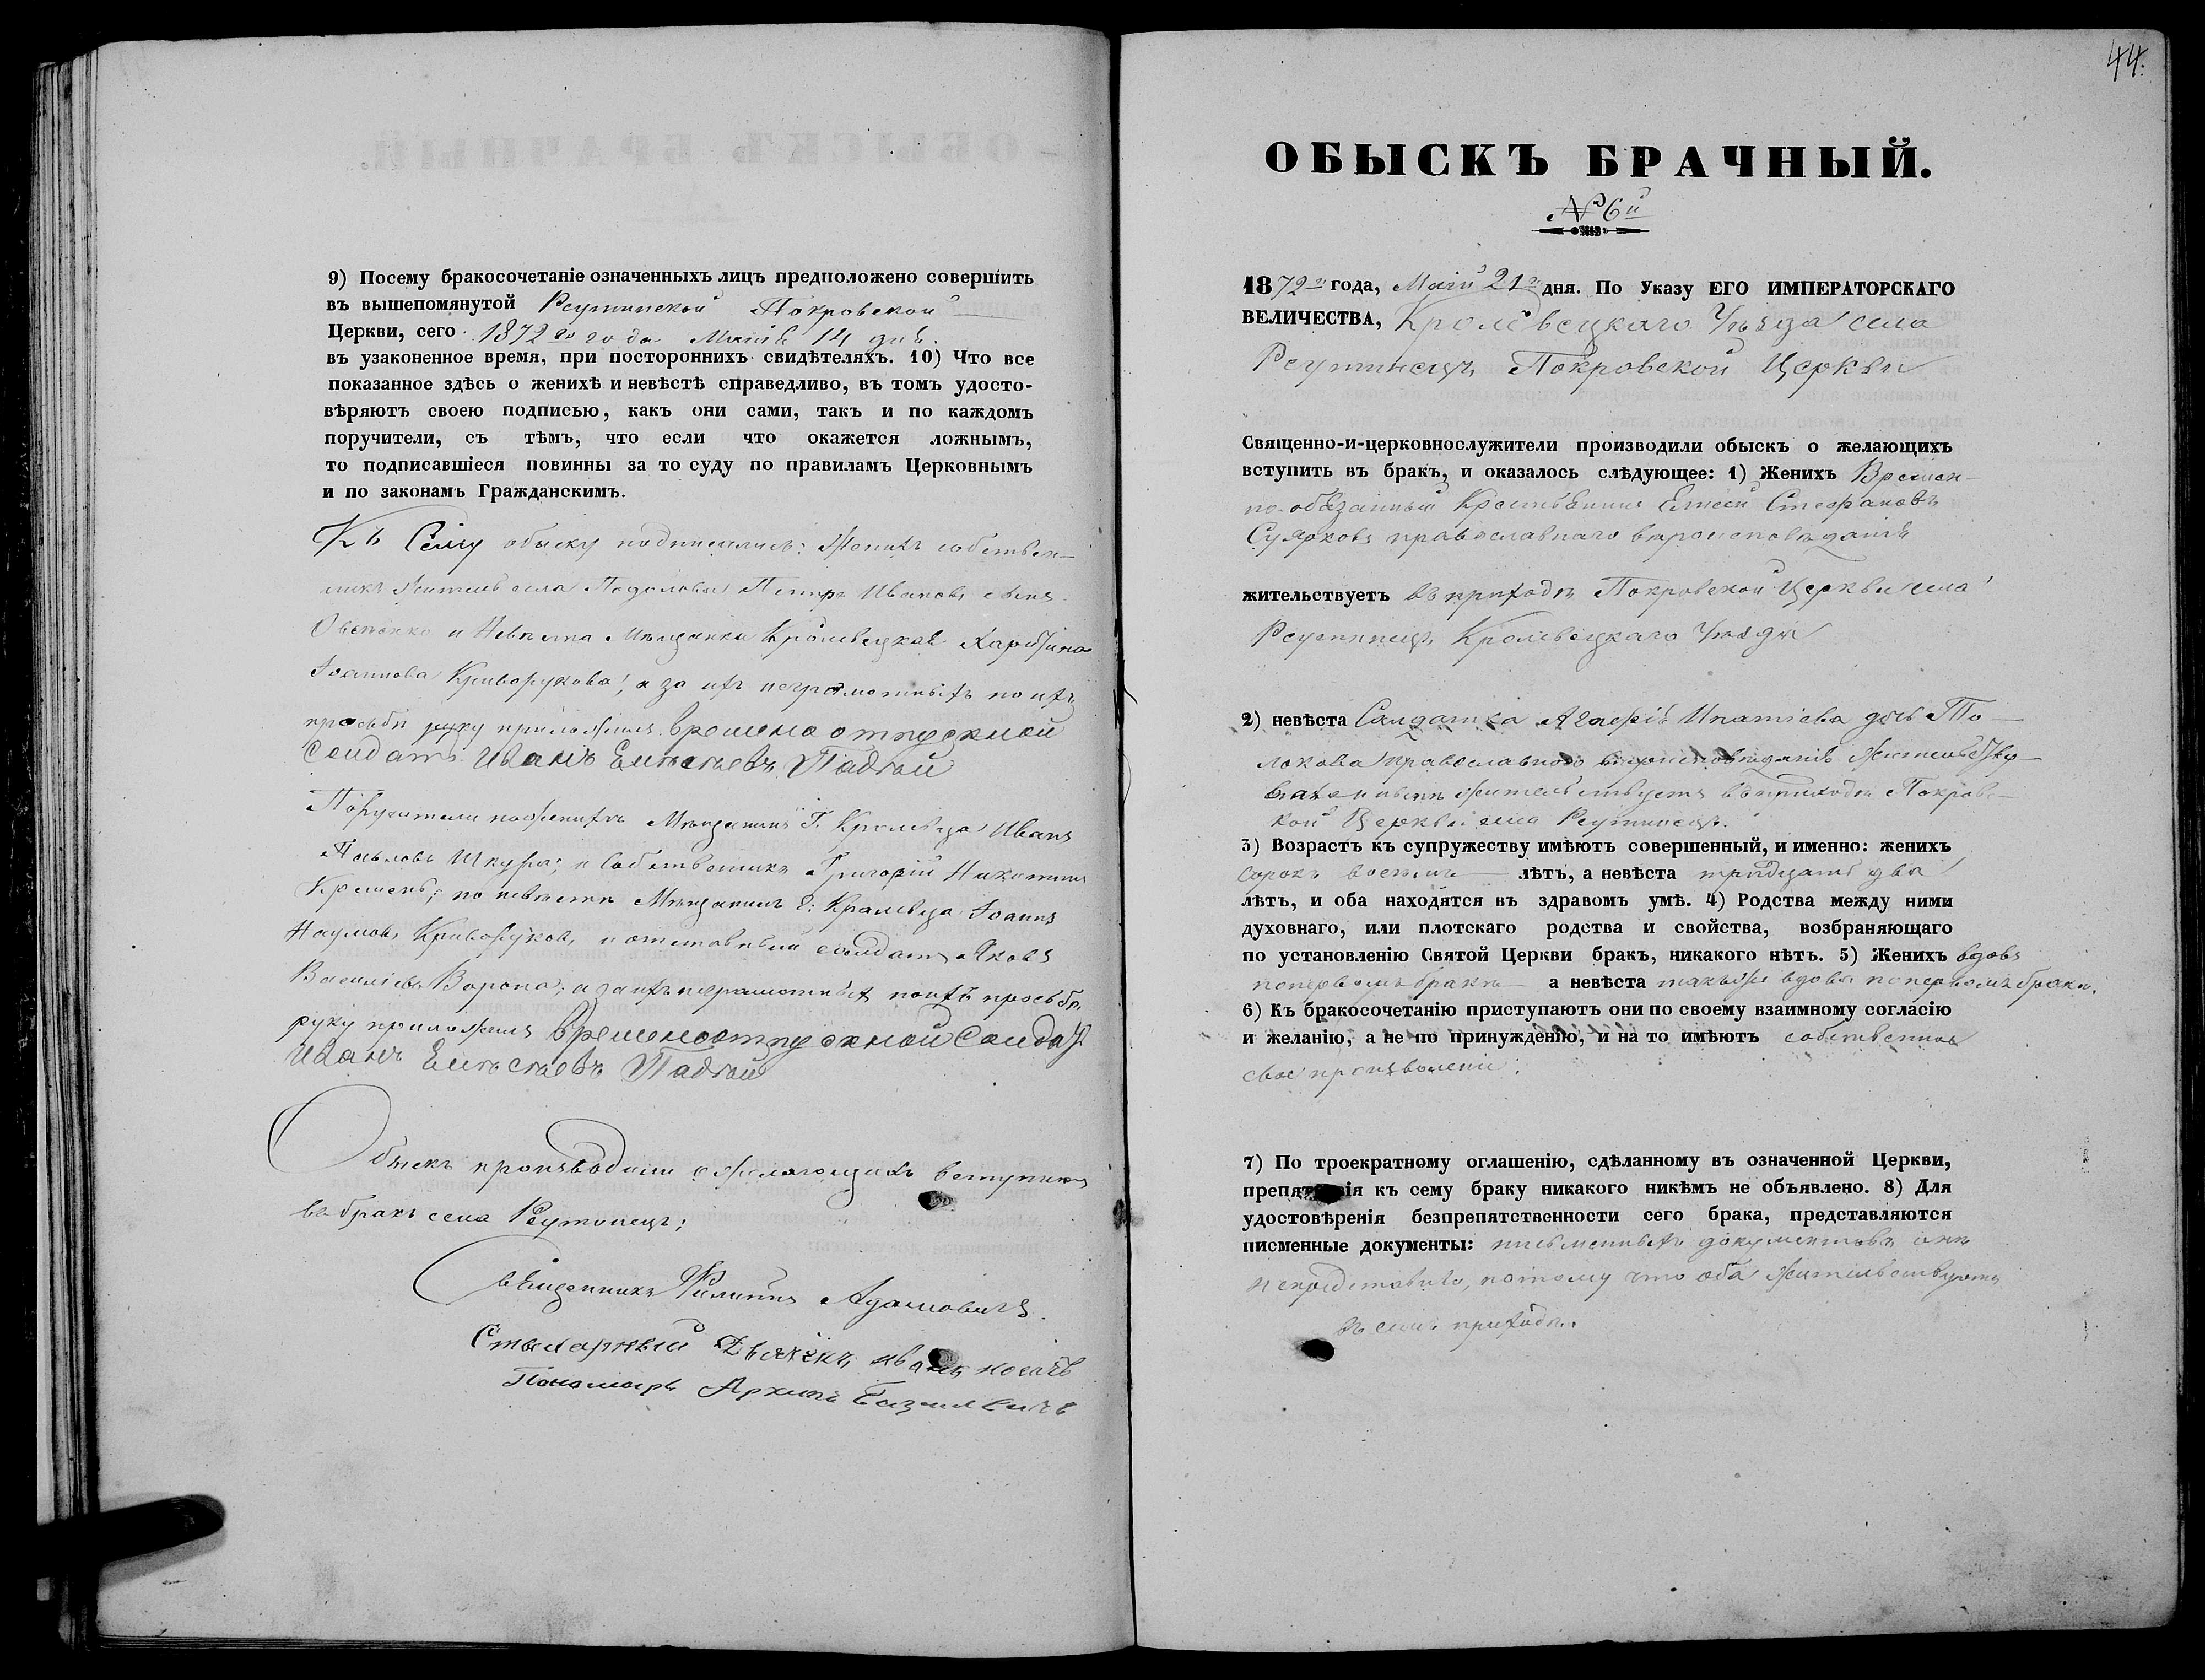 9) Посему бракосочетаніе означенныхъ лицъ предположено совершить
въ вышепомянутой Реутинской Покровской
Церкви, сего 1872го года Маія 14 дня.
въ узаконенное время, при постороннихъ свидѣтеляхъ. 10) Что все
показанное здѣсь о женихѣ и невѣстѣ справедливо, въ томъ удосто-
вѣряютъ своею подписью, какъ они сами, такъ и по каждомъ
поручители, съ тѣмъ, что если что окажется ложнымъ,
то подписавшіеся повинны за то суду по правиламъ Церковнымъ
и по законамъ Гражданскимъ.
Къ Сему обыску подписались: Женихъ собствен-
никъ житель села Подолова Петръ Ивановъ сынъ
Овсіенко и Невѣста Мѣщанка Кролевецкая Харитина
Іоаннова Криворукова, а за ихъ неграмотныхъ по ихъ
прозьби руку приложилъ времено отпускной
Солдатъ Иванъ Елисѣевъ Падгай
Поручители по женихѣ Мѣщанинъ Г. Кролевца Иванъ
Павловъ Шкура; и Собственникъ Григорій Никитинъ
Кремень; по невѣстѣ Мѣщанинъ г. Кролевца Іоаннъ
Наумовъ Криворуковъ и отставный солдатъ Яковъ
Василіевъ Ворона; а за ихъ неграмотныхъ по ихъ прозьби
руку приложилъ временоотпускной Солдатъ
Иванъ Елисѣевъ Падгай
Обыскъ производили о желающихъ вступить
въ бракъ села Реутинецъ:
Священникъ Филиппъ Адамовичъ.
Стихарный Дьячекъ Иванъ Носачъ
Пономарь Архипъ Базилевичъ
44.
ОБЫСКЪ БРАЧНЫЙ.
№ 6й
1872го года, Маія 21го дня. По Указу ЕГО ИМПЕРАТОРСКАГО
ВЕЛИЧЕСТВА, Кролевецкаго Уѣзда села
Реутинецъ Покровской Церкви
Священно-и-церковнослужители производили обыскъ о желающихъ
вступить въ бракъ, и оказалось слѣдующее: 1) Женихъ Времен-
но-обязанный Крестьянинъ Стефановъ
православнаго вѣроисповѣданія
жительствуетъ въ приходѣ Покровской Церкви села
Реутинецъ Кролевецкаго Уѣзда
2) невѣста Салдатка Агафія Ипатіева дочь То-
локова православнаго вѣроисповѣданія
жительствуетъ въ приходѣ Покровс-
кой Церкви села Реутинецъ.
3) Возрастъ къ супружеству имѣютъ совершенный, и именно: женихъ
сорокъ восемь лѣтъ, а невѣста тридцать два
лѣтъ, и оба находятся въ здравомъ умѣ. 4) Родства между ними
духовнаго, или плотскаго родства и свойства, возбраняющаго
по установленію Святой Церкви бракъ, никакого нѣтъ. 5) Женихъ вдовъ
по первомъ бракѣ а невѣста такъже вдова по первомъ бракѣ.
6) Къ бракосочетанію приступаютъ они по своему взаимному согласію
и желанію, а не по принужденію, и на то имѣютъ собственное
свое произволеніе.
7) По троекратному оглашенію, сдѣланному въ означенной Церкви,
препятствія къ сему браку никакого никѣмъ не объявлено. 8) Для
удостовѣренія безпрепятственности сего брака, представляются
писменные документы: письменныхъ документовъ они
непредставили, потому что оба жительствуютъ
въ семъ приходѣ.